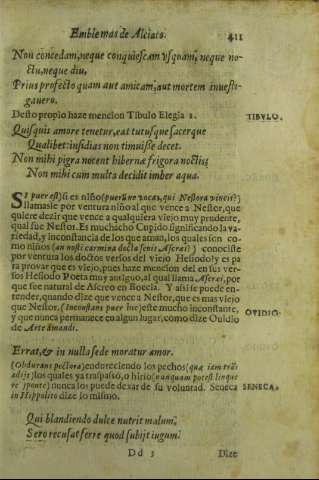 Emblemas de Alciato. 411
Non concedam, neque conquiescam vsquam, neque no-
ctu, neque diu,
Prius profecto quam aut amicam, aut mortem inuesti-
gauero.
Desto propio haze mencion Tibulo Elegia 2. TIBVLO.
Quisquis amore tenetur, eat tutusque sacerque
Qualibet: insidias non timuisse decet.
Non mihi pigra nocent hibernæ frigora noctis;
Non mihi cum multa decidit imber aqua.
Si puer est) si es niño (puerũne vocas, qui Nestora vincit?)
llamasle por ventura niño al que vence a Nestor, que
quiere dezir que vence a qualquiera viejo muy prudente,
qual fue Nestor. Es muchacho Cupido significando la va-
riedad, y inconstancia de los que aman, los quales son co-
mo niños (an nosti carmina docta senis Ascrei?) conociste
por ventura los doctos versos del viejo Hesiodo? y es pa
ra provar que es viejo, pues haze mencion del en sus ver-
sos Hesiodo Poeta muy antiguo, al qual llama Ascreo, por
que fue natural de Ascreo en Boecia. Y assi se puede en-
tender, quando dize que vence a Nestor, que es mas viejo
que Nestor. (Inconstans puer hic) este es mucho inconstante, OVIDIO.
y que nunca permanece en algun lugar, como dize Ouidio
de Arte amandi.
Errat, & in nulla sede moratur amor.
(Obdurans pectora) endureciendo los pechos (quæ iam trãs
adijt) los quales ya traspassó, o hirio (nunquam potest linque
re sponte) nunca los puede dexar de su voluntad. Seneca SENECA.
in Hippolito dize lo mismo.
Qui blandiendo dulce nutrit malum,
Sero recusat ferre quod subijt iugum.
Dd 3 Dize